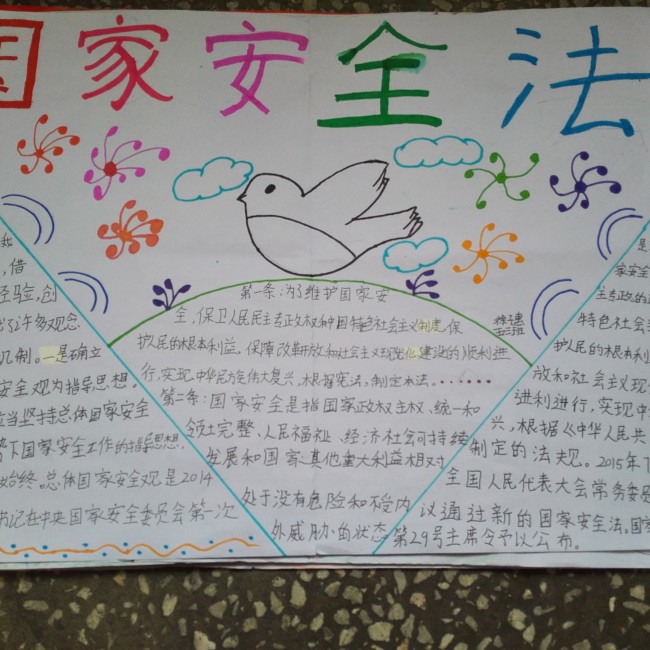 国家安全法
借
经验,创
了许多观念
机制。一是确立
安全观为指导思想。
应当坚持总体国家安全
下国家安全工作的指导思想.
始终.总体国家安全观是2014
书记在中央国家安全委员会第一次
第一条:为了维护国家安
全,保卫人民民主专政政权和中国特色社会主义制度,保
护人民的根本利益,保障改革开放和社会主义现代化建设的顺利进
行,实现中华民族伟大复兴,根据宪法,制定本法。......
第二条:国家安全是指国家政权主权、统一和
领土完整、人民福祉、经济社会可持续
发展和国家其他重大利益相对
处于没有危险和不受内
外威胁的状态
是
家安全
主专政的政
特色社会主
护人民的根本利
放和社会主义现
进利进行,实现中
兴,根据《中华人民共
制定的法规。2015年7
全国人民代表大会常务委
议通过新的国家安全法。国
第29号主席令予以公布。